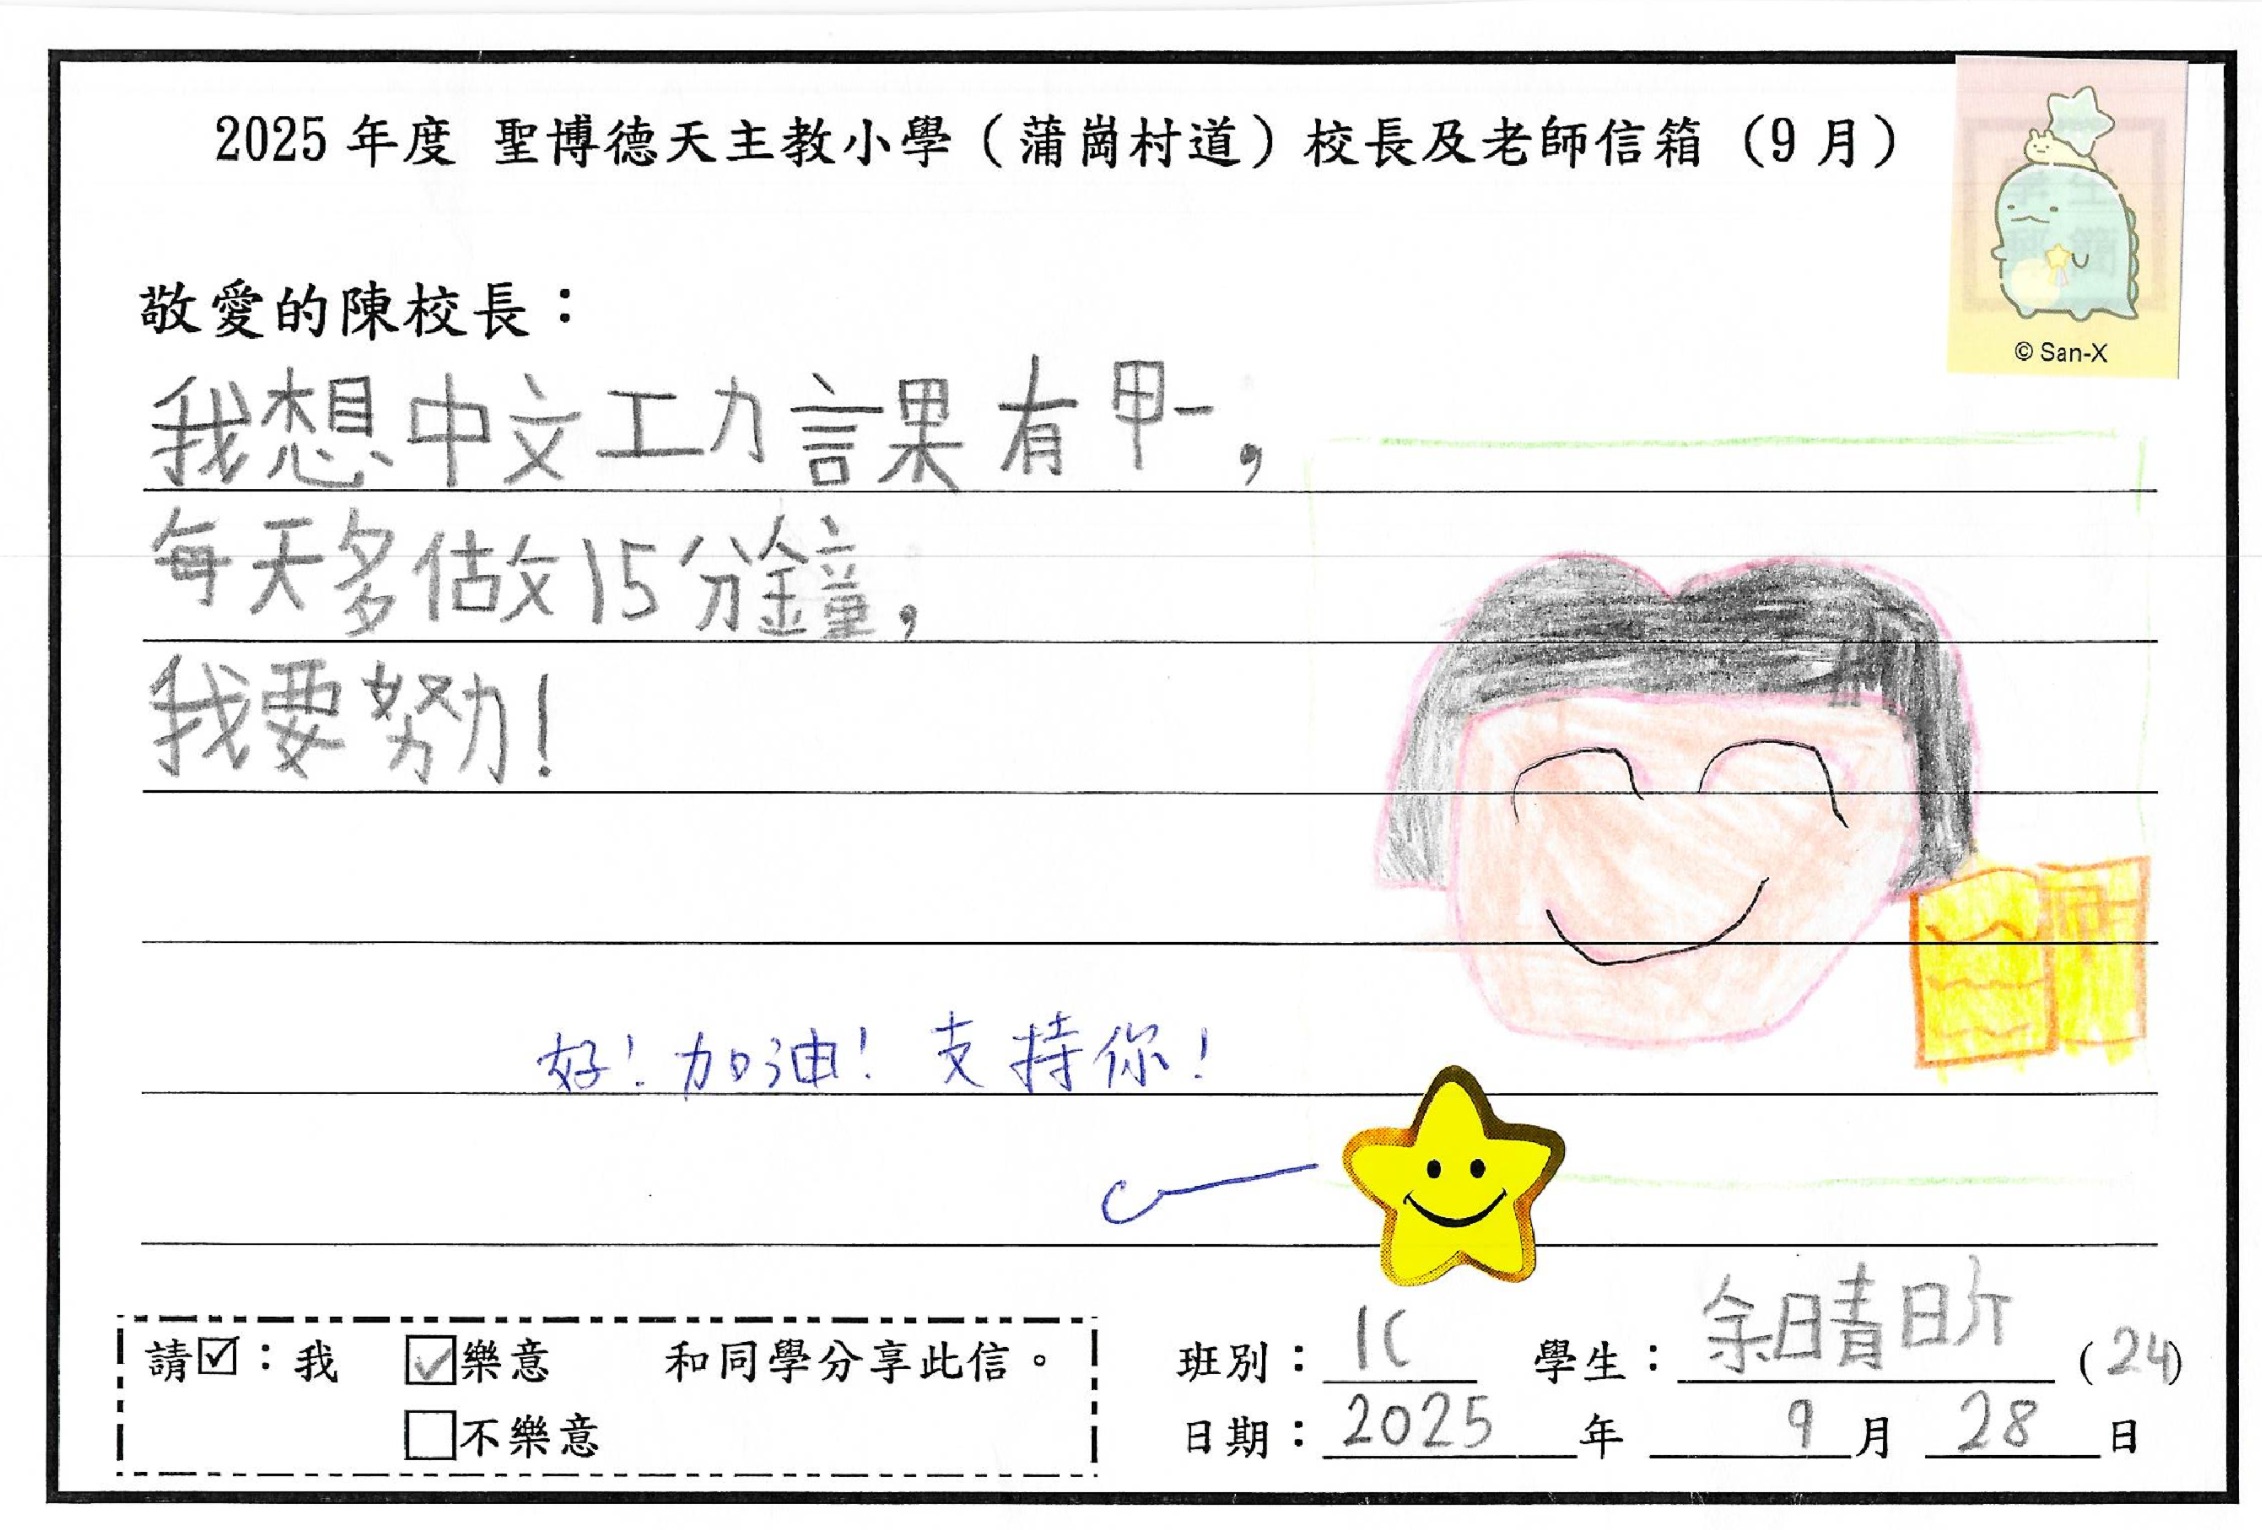 2025 年度 聖博德天主教小學（蒲崗村道）校長及老師信箱（9 月）
© San-X
敬愛的陳校長：
我想中文功課有甲-，
每天多做15分鐘，
我要努力！
好！加油！支持你！
請☑：我 ☑樂意 和同學分享此信。
□不樂意
班別：1C 學生：余晴昕（24）
日期：2025年 9月 28日